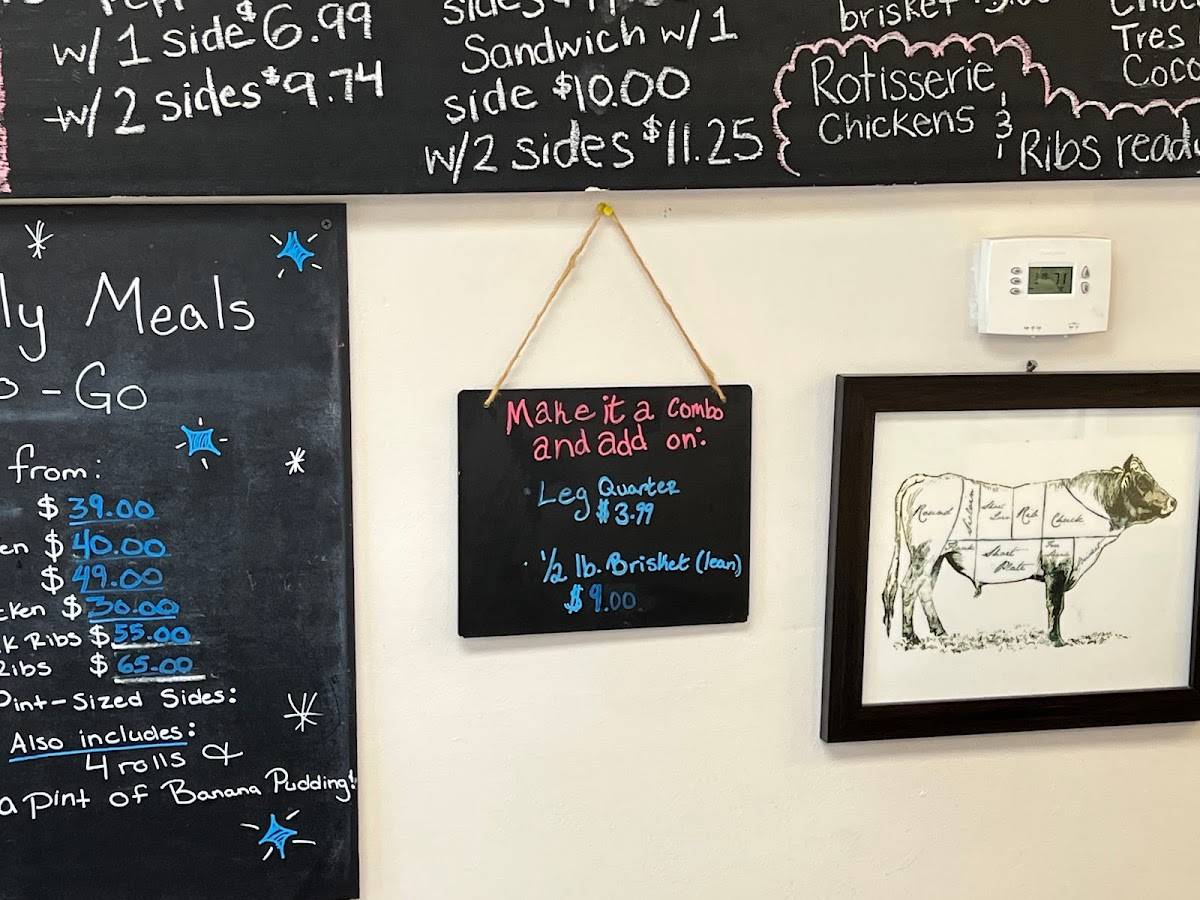 w/ 1 side $6.99
w/ 2 sides $9.74
sides
Sandwich w/1
side $10.00
w/2 sides $11.25
brisket
Rotisserie
Chickens &
Ribs ready
Tres
Coco
ly Meals
o-Go
from:
$ 39.00
en $ 40.00
$ 49.00
cken $ 30.00
k Ribs $ 55.00
Ribs $ 65.00
Pint-Sized Sides:
Also includes:
4 rolls &
a pint of Banana Pudding!
Make it a Combo
and add on:
· Leg Quarter
$3.99
· 1/2 lb. Brisket (lean)
$9.00
71
Round
Sirloin
Short
Loin
Rib
Chuck
Short
Plate